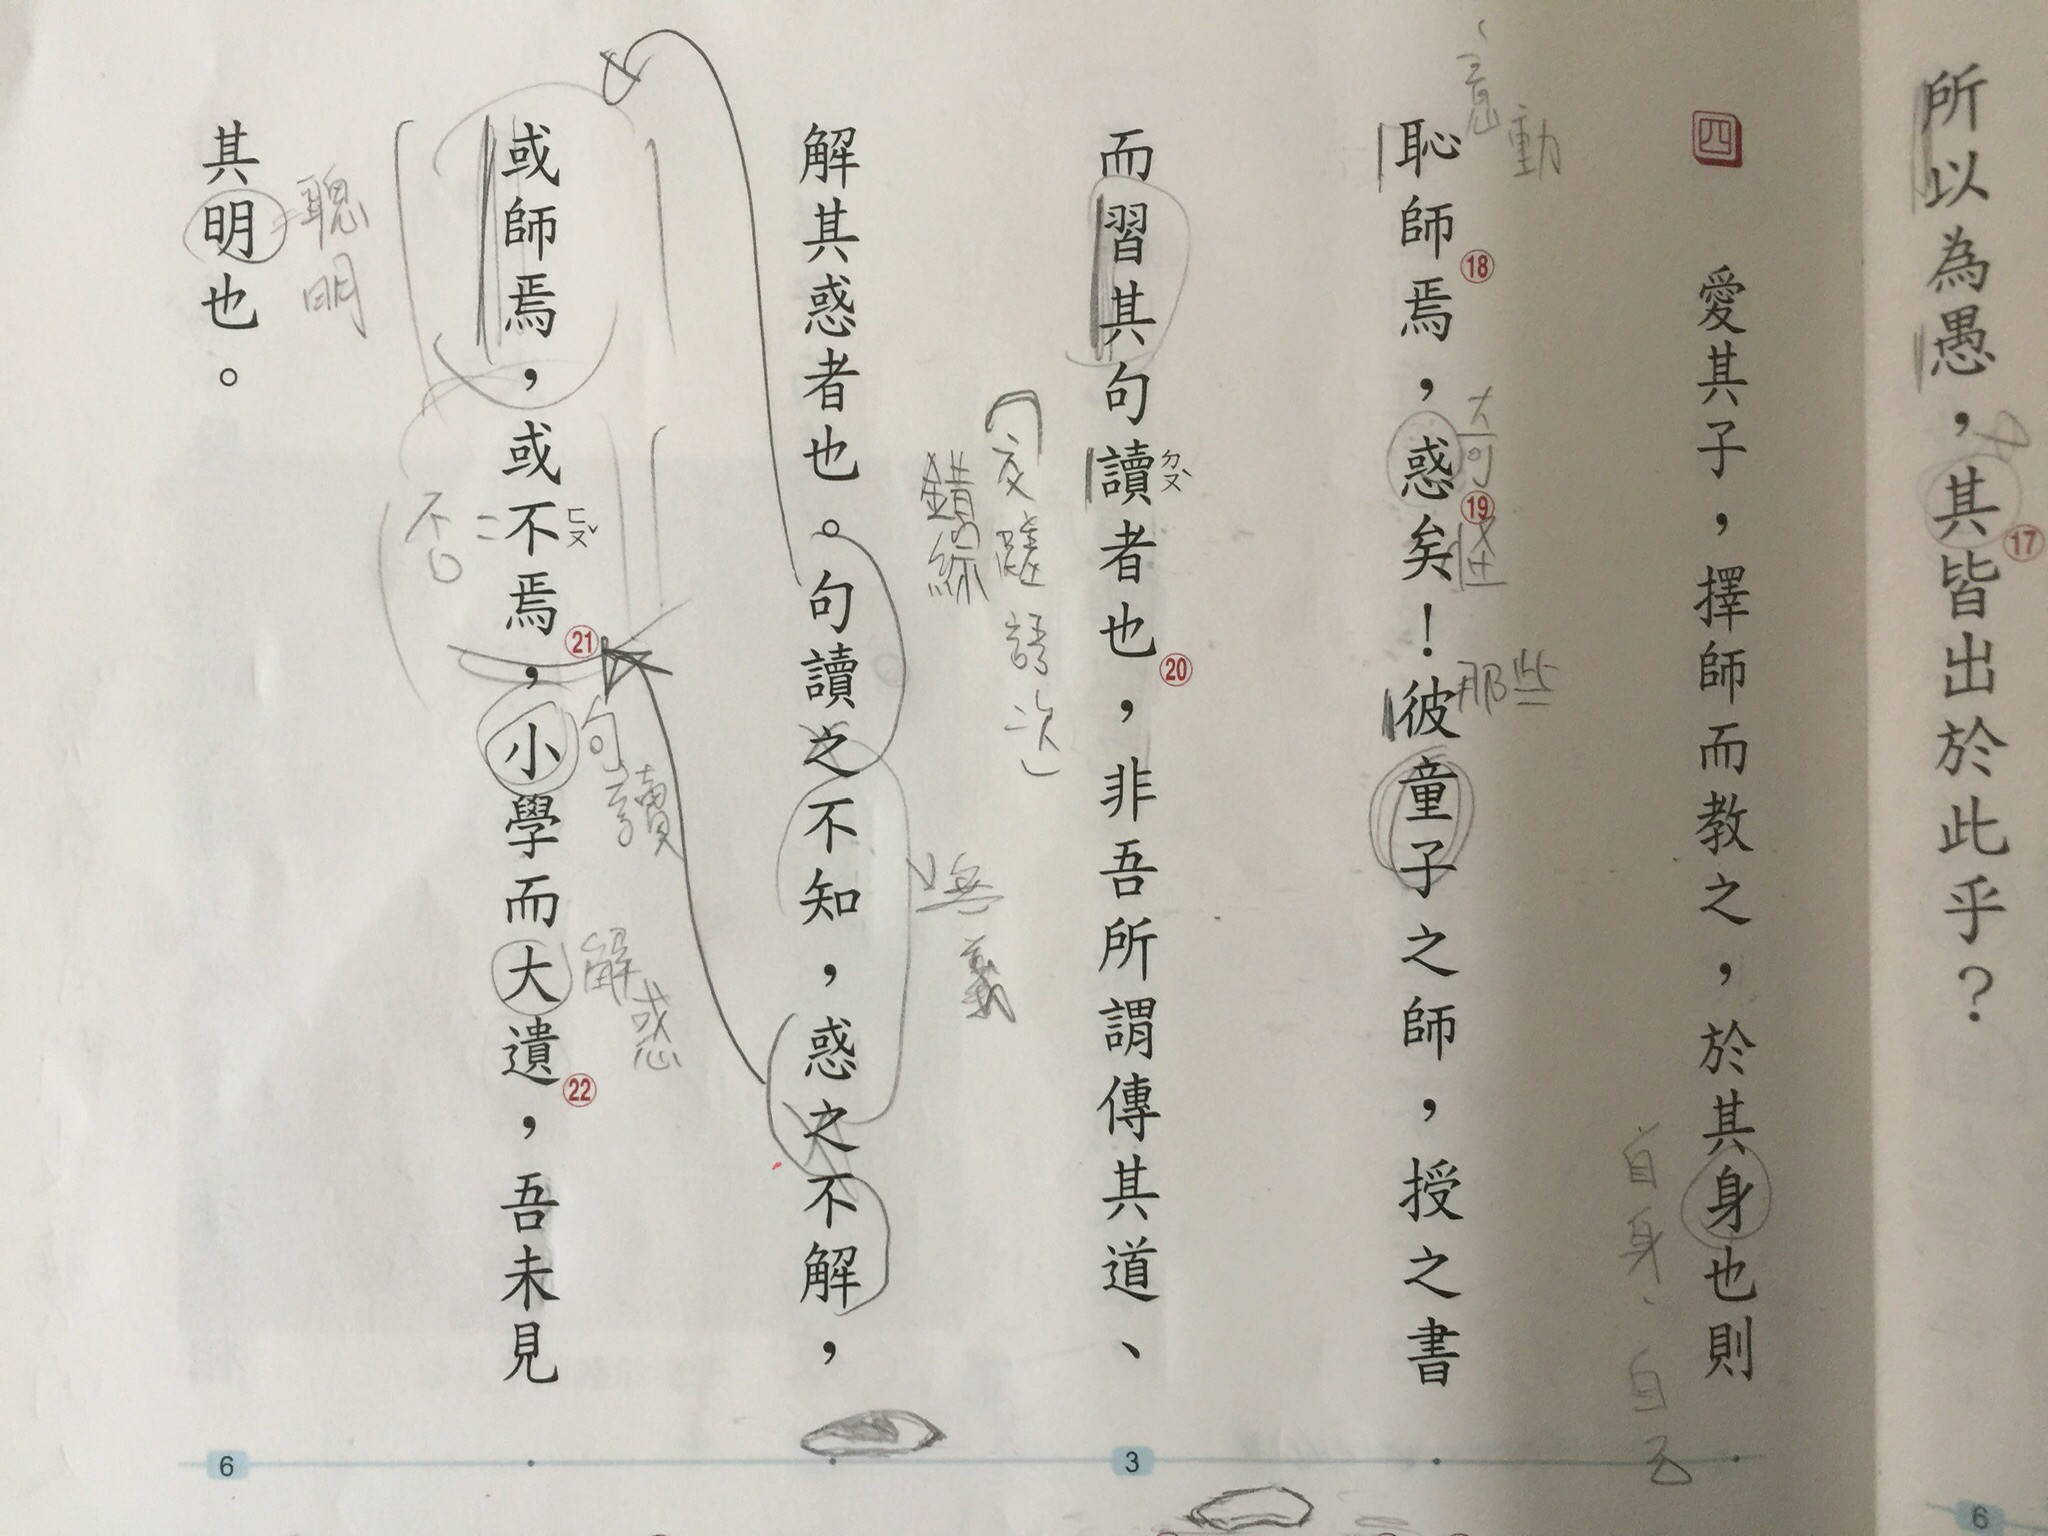 所以為愚，其⑰皆出於此乎？
四 愛其子，擇師而教之，於其身也則
自身、自己
恥師⑱焉，惑⑲矣！彼童子之師，授之書
意動
那些
而習其句讀ㄉㄡˋ者也⑳，非吾所謂傳其道、
錯綜
解其惑者也。句讀之不知，惑之不解，
或師焉，或不ㄈㄡˇ焉㉑，小學而大遺㉒，吾未見
句讀
解惑
否=
其明也。
聰明
3
6
6